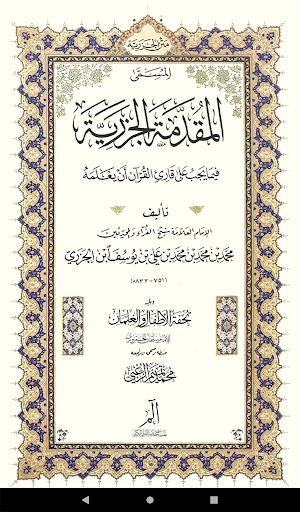 متن الجزرية
المسمّى
المقدمة الجزرية
فيما يجب على قارئ القرآن أن يعلمه
تأليف
الإمام العلامة شيخ القراء والمحدثين
محمد بن محمد بن محمد بن علي بن يوسف ابن الجزري
(٧٥١-٨٣٣هـ)
ويليه
تحفة الأطفال والغلمان
محمد تميم الزعبي